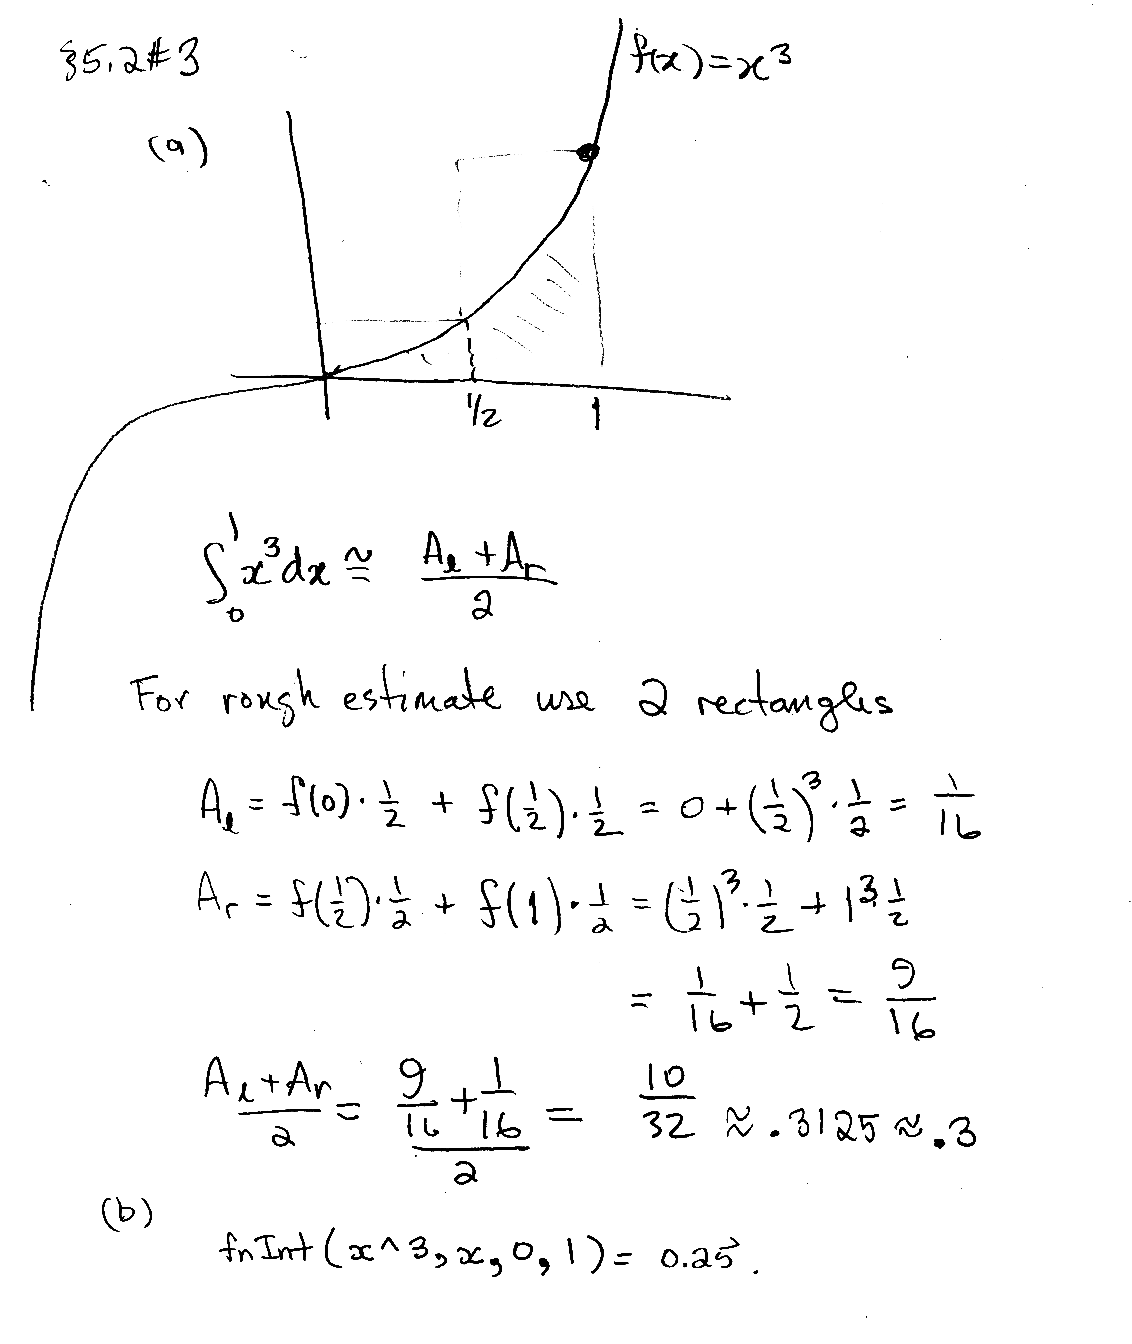 §5.2#3
f(x)=x³
(a)
1/2 1
∫₀¹ x³dx ≅ (Aₗ+Aᵣ)/2
For rough estimate use 2 rectangles
Aₗ = f(0)·1/2 + f(1/2)·1/2 = 0+(1/2)³·1/2 = 1/16
Aᵣ = f(1/2)·1/2 + f(1)·1/2 = (1/2)³·1/2 + 1³·1/2
= 1/16 + 1/2 = 9/16
(Aₗ+Aᵣ)/2 = (9/16 + 1/16)/2 = 10/32 ≈ .3125 ≈ .3
(b)
fnInt(x^3,x,0,1)= 0.25.